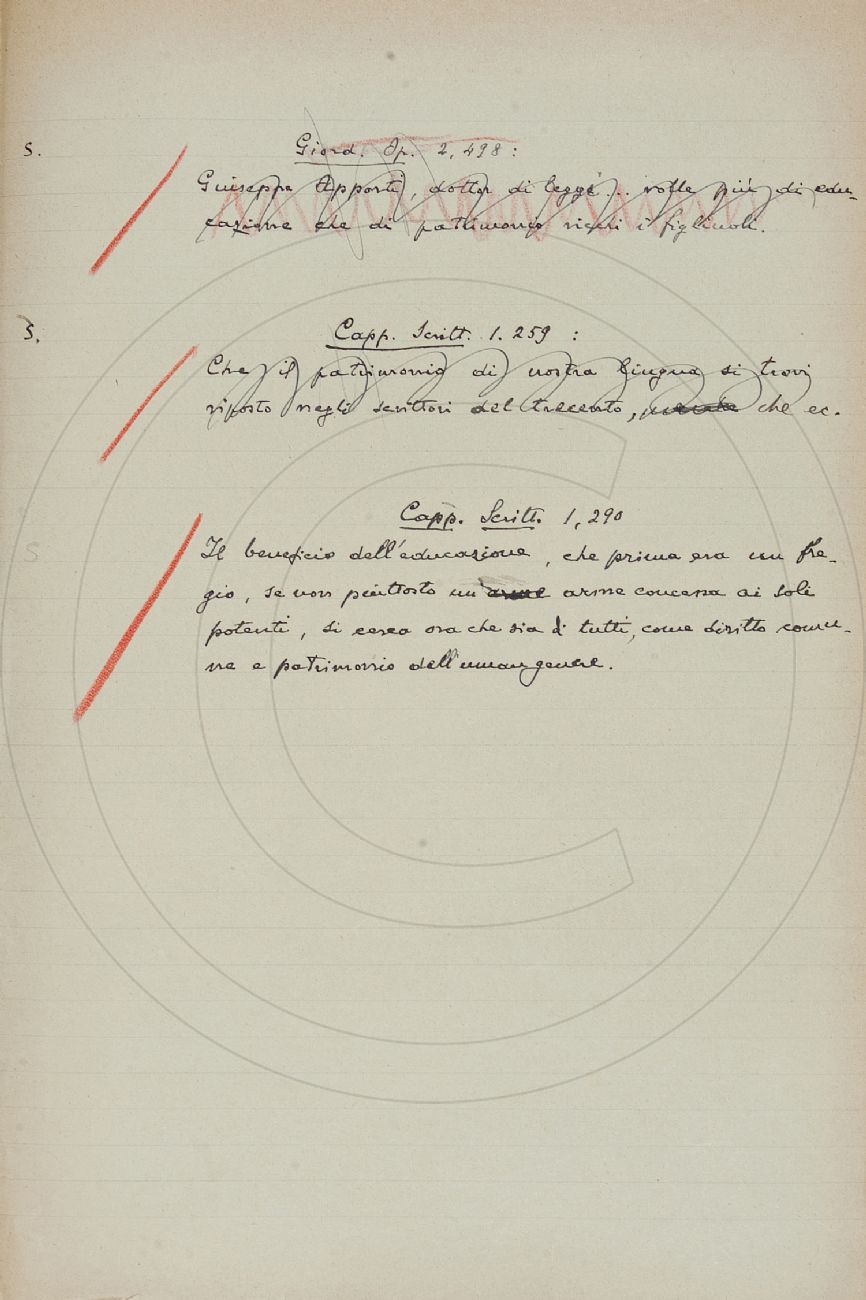 S. Giord. Op. 2, 498 :
Giuseppe Apporti, dottor di leggi .. volle più di edu-
cazione che di patrimonio ricchi i figliuoli.
S. Capp. Scritt. 1. 259 :
Che il patrimonio di nostra lingua si trovi
riposto negli scrittori del trecento, che ec.
S Capp. Scritt. 1, 290
Il beneficio dell'educazione, che prima era un fre-
gio, se non piuttosto un' arme concessa ai soli
potenti, si cerca ora che sia di tutti, come diritto comu-
ne e patrimonio dell'uman genere.